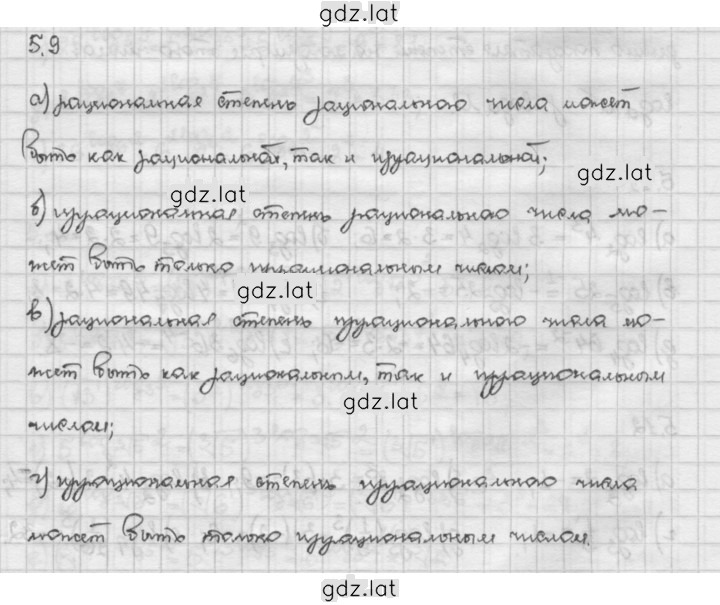 gdz.lat
5.9
а) рациональная степень рационального числа может
быть как рациональной, так и иррациональной;
gdz.lat
gdz.lat
б) иррациональная степень рационального числа мо-
жет быть только иррациональным числом;
gdz.lat
в) рациональная степень иррационального числа мо-
жет быть как рациональным, так и иррациональным
gdz.lat
числом;
г) иррациональная степень иррационального числа
может быть только иррациональным числом.
gdz.lat